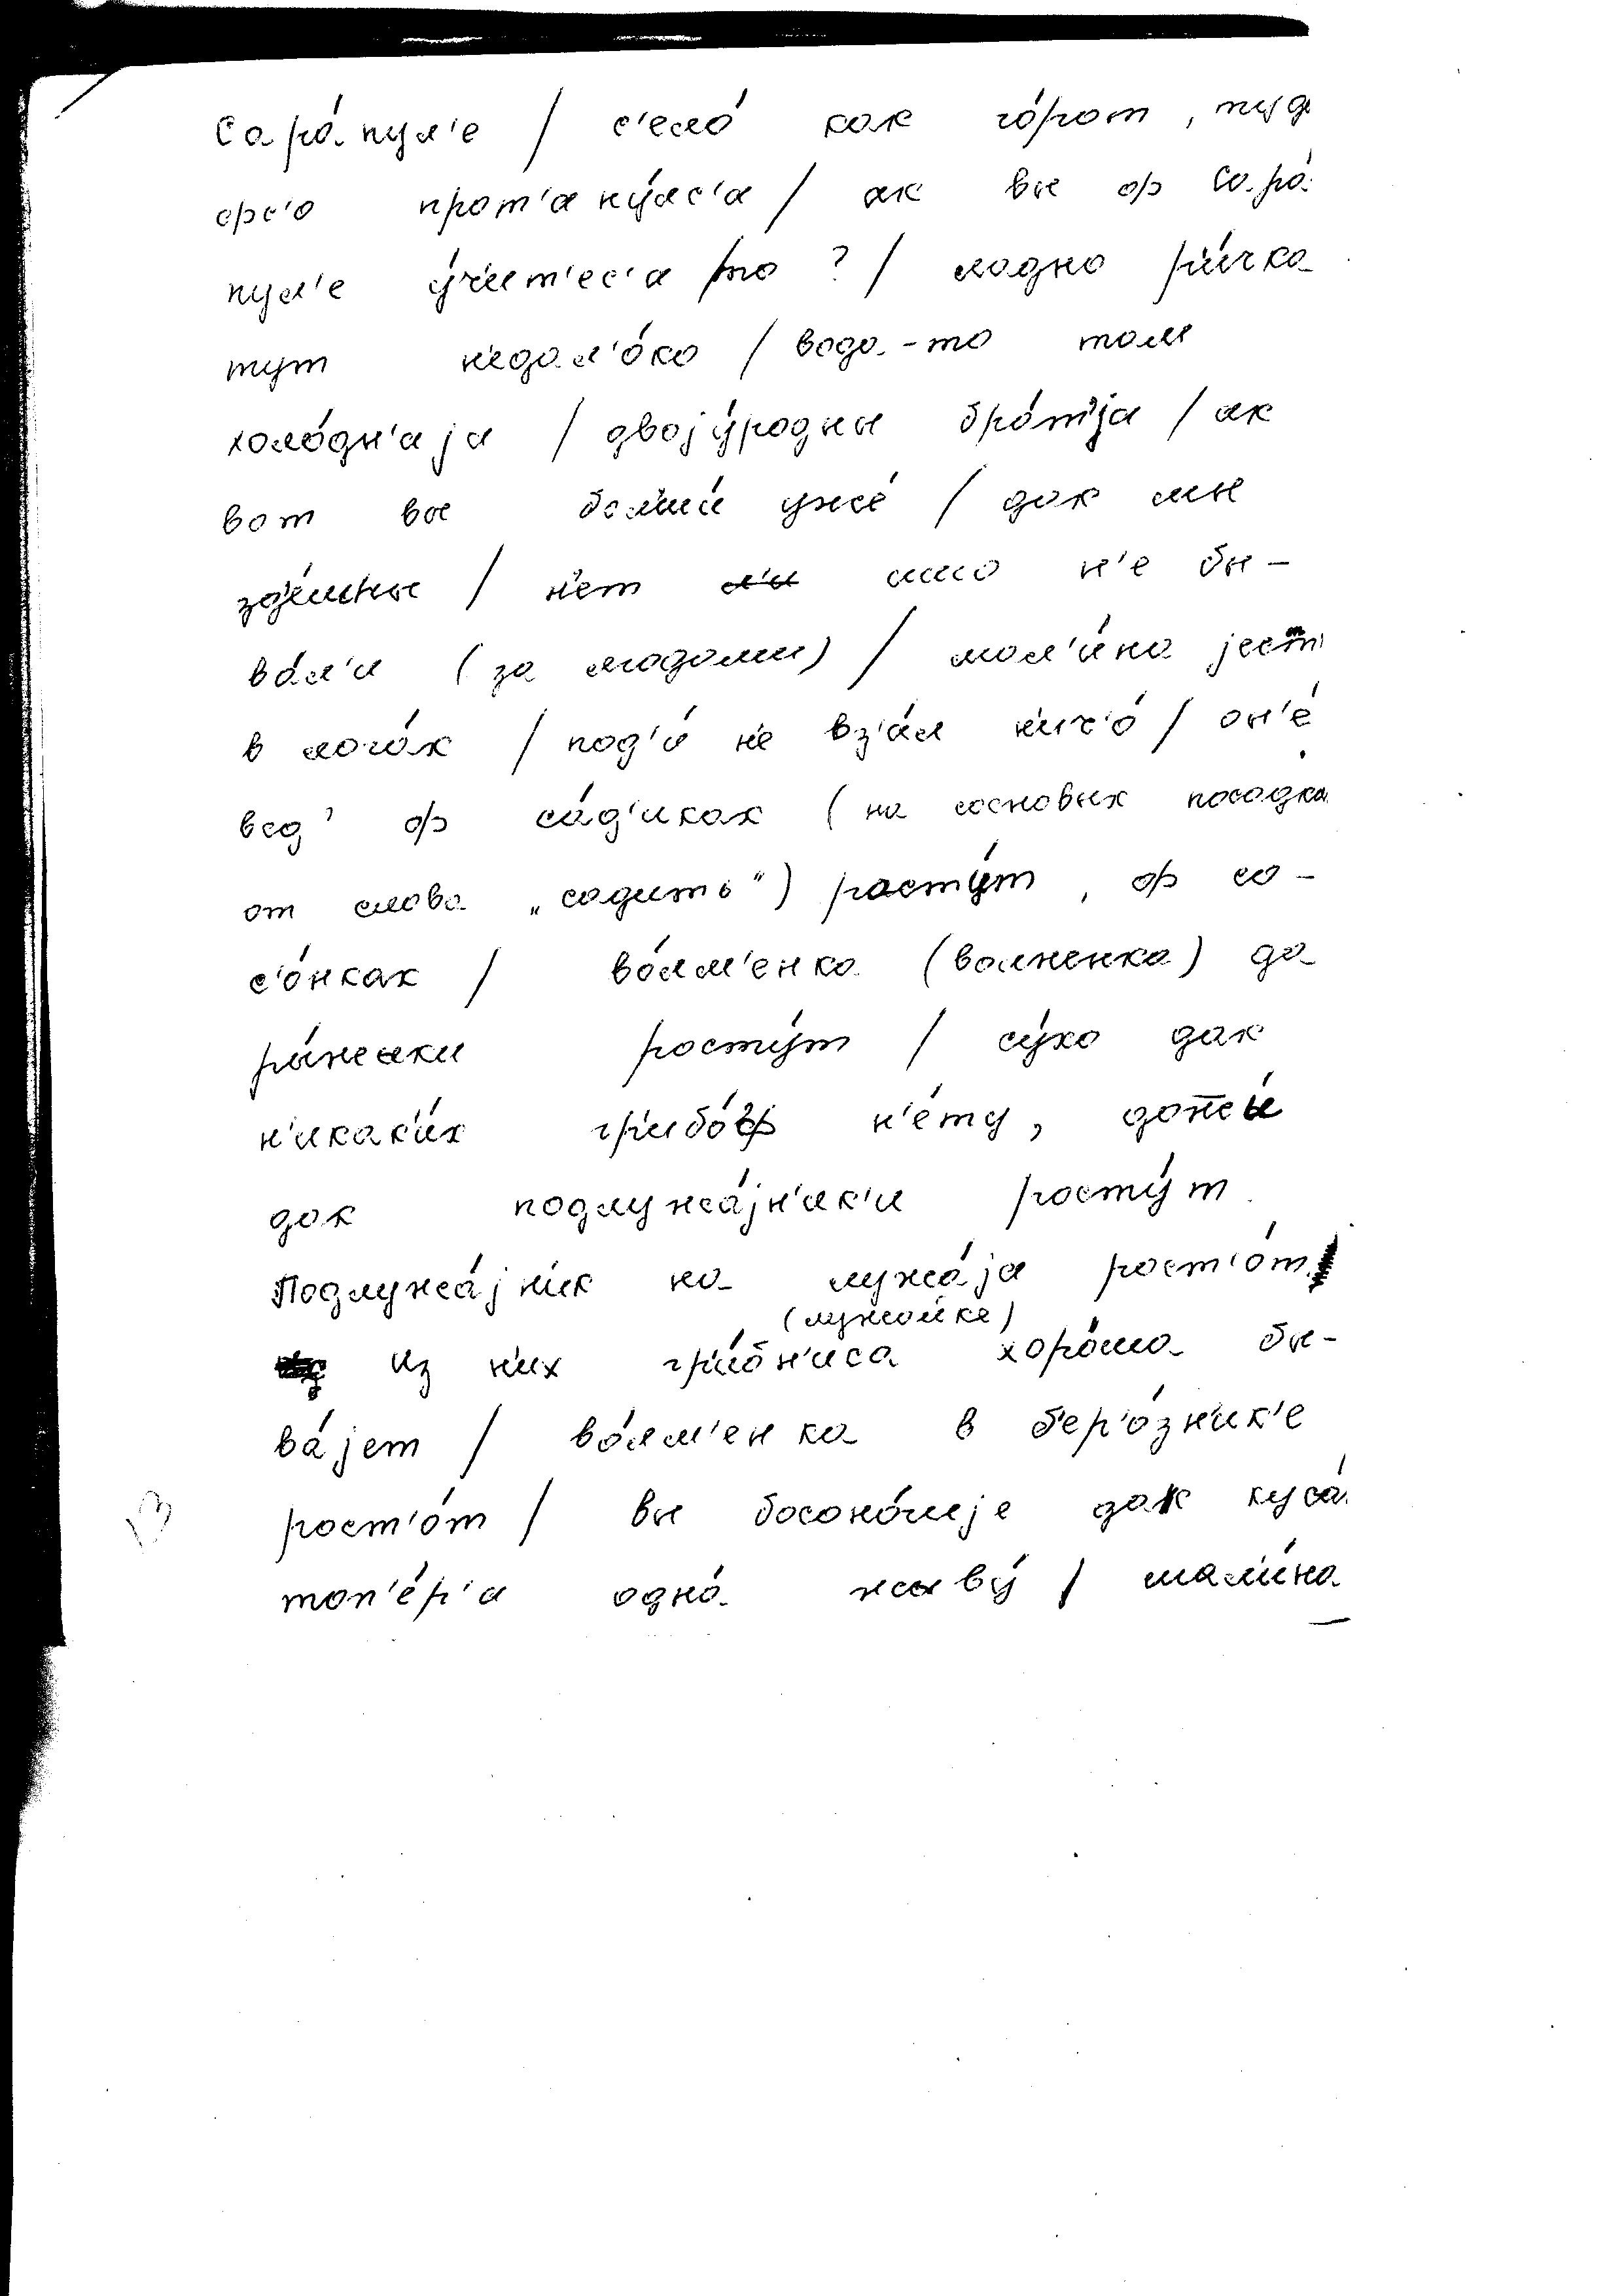 Сара́пул'е / с'ело́ как го́рот, туд
фс'о прот'анýлс'а / ак вы ф Сара́
пул'е ýч'ит'ес'а то ? / ладно р'и́чка
тут н'едал'о́ко / вода-то там
холо́дн'аја / двојýродны бра́т'ја / ак
вот вы бол'ши́ уже́ / дак мы
зд'е́шны / н'ет ишшо н'е бы-
ва́л'и (за ягодами) / мал'и́на јест'
в лога́х / под'и́ н'е вз'а́л н'ич'о́ / он'е́
вед' ф са́д'иках (на сосновых посадка
от слова „садить") растýт, ф со-
с'о́нках / во́лм'енка (волненка) да
ры́жыки ростýт / сýхо дак
н'икак'и́х гр'ибо́ф н'е́ту,
дак подлужа́јн'ик'и ростýт
Подлужа́јн'ик на лужа́ја рост'о́т
(лужайке)
из н'их гр'ибн'и́са хоро́ша бы-
ва́јет / во́лм'енка в б'ер'о́зн'ик'е
рост'о́т / вы босоно́гије дак куса́
топ'е́р'а одна́ жывý / мал'и́на
13